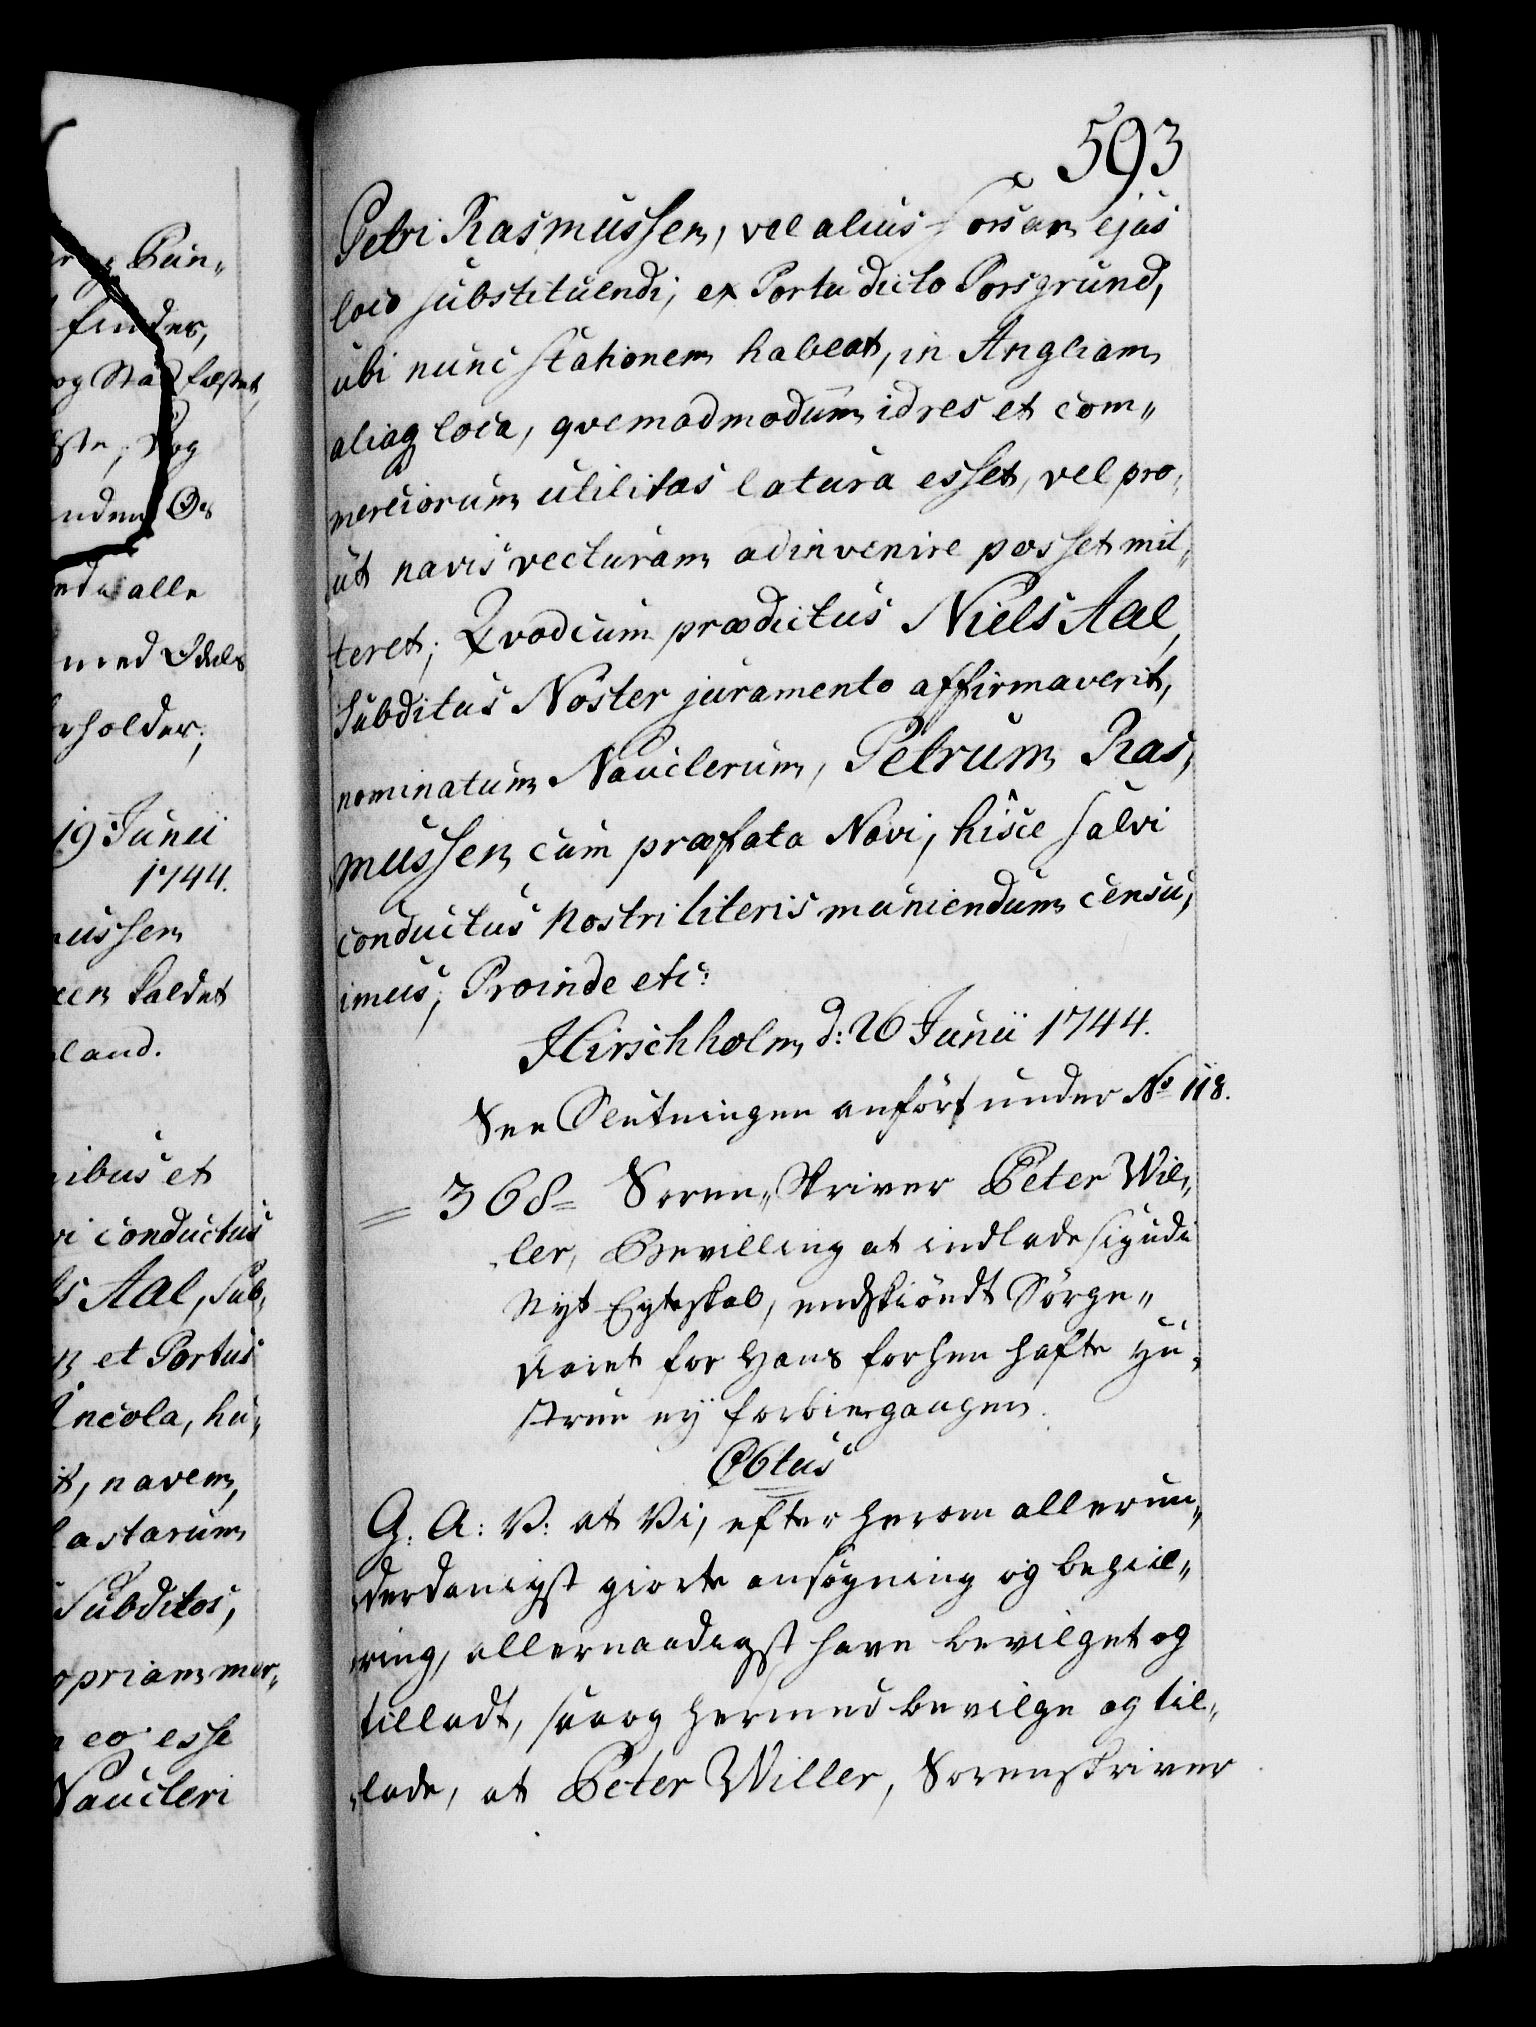 593
Petri Rasmussen, vel alius forsan ejus
loco substituendi, ex Portu dicto Porsgrund,
ubi nunc stationem habeat, in Angliam
aliaq loca, qvemadmodum id res et com„
merciorum utilitas latura esset, vel pro„
ut navis vecturam adinvenire posset mit„
teret; Qvod cum prædictus Niels Aal,
Subditus Noster juramento affirmaverit,
nominatum Nauclerum, Petrum Ras„
mussen cum præfata Navi, hisce salvi
conductus nostri literis muniendum censu„
imus, Proinde etc:
Hirschholm d: 26 Junii 1744.
See Slutningen anført under No 118.
= 368 = Soren„Skriver Peter Wil„
ler, Bevilling at indlade sig udi
Nyt Egteskab, endskiöndt Sörge„
Aaret for Hans forhen hafte Hu„
strue ey forbiegangen.
Obtus
G: A: V: at Vi, efter herom allerun„
derdanigst giorte ansøgning og begiæ„
ring, allernaadigst have bevilget og
tilladt, saa og hermed bevilge og til„
lade, at Peter Willer, Sorenskriver
Pun„
finder,
og Stadfæstet,
og
alle
med Odels
erholder,
19 Junii
1744.
ussen
kaldet
land.
ibus et
vi conductus
s Aal, Sub„
et Portus
Incola, hu„
t, navem,
lastarum
Subditos,
opriam mer„
eo esse
Naucleri